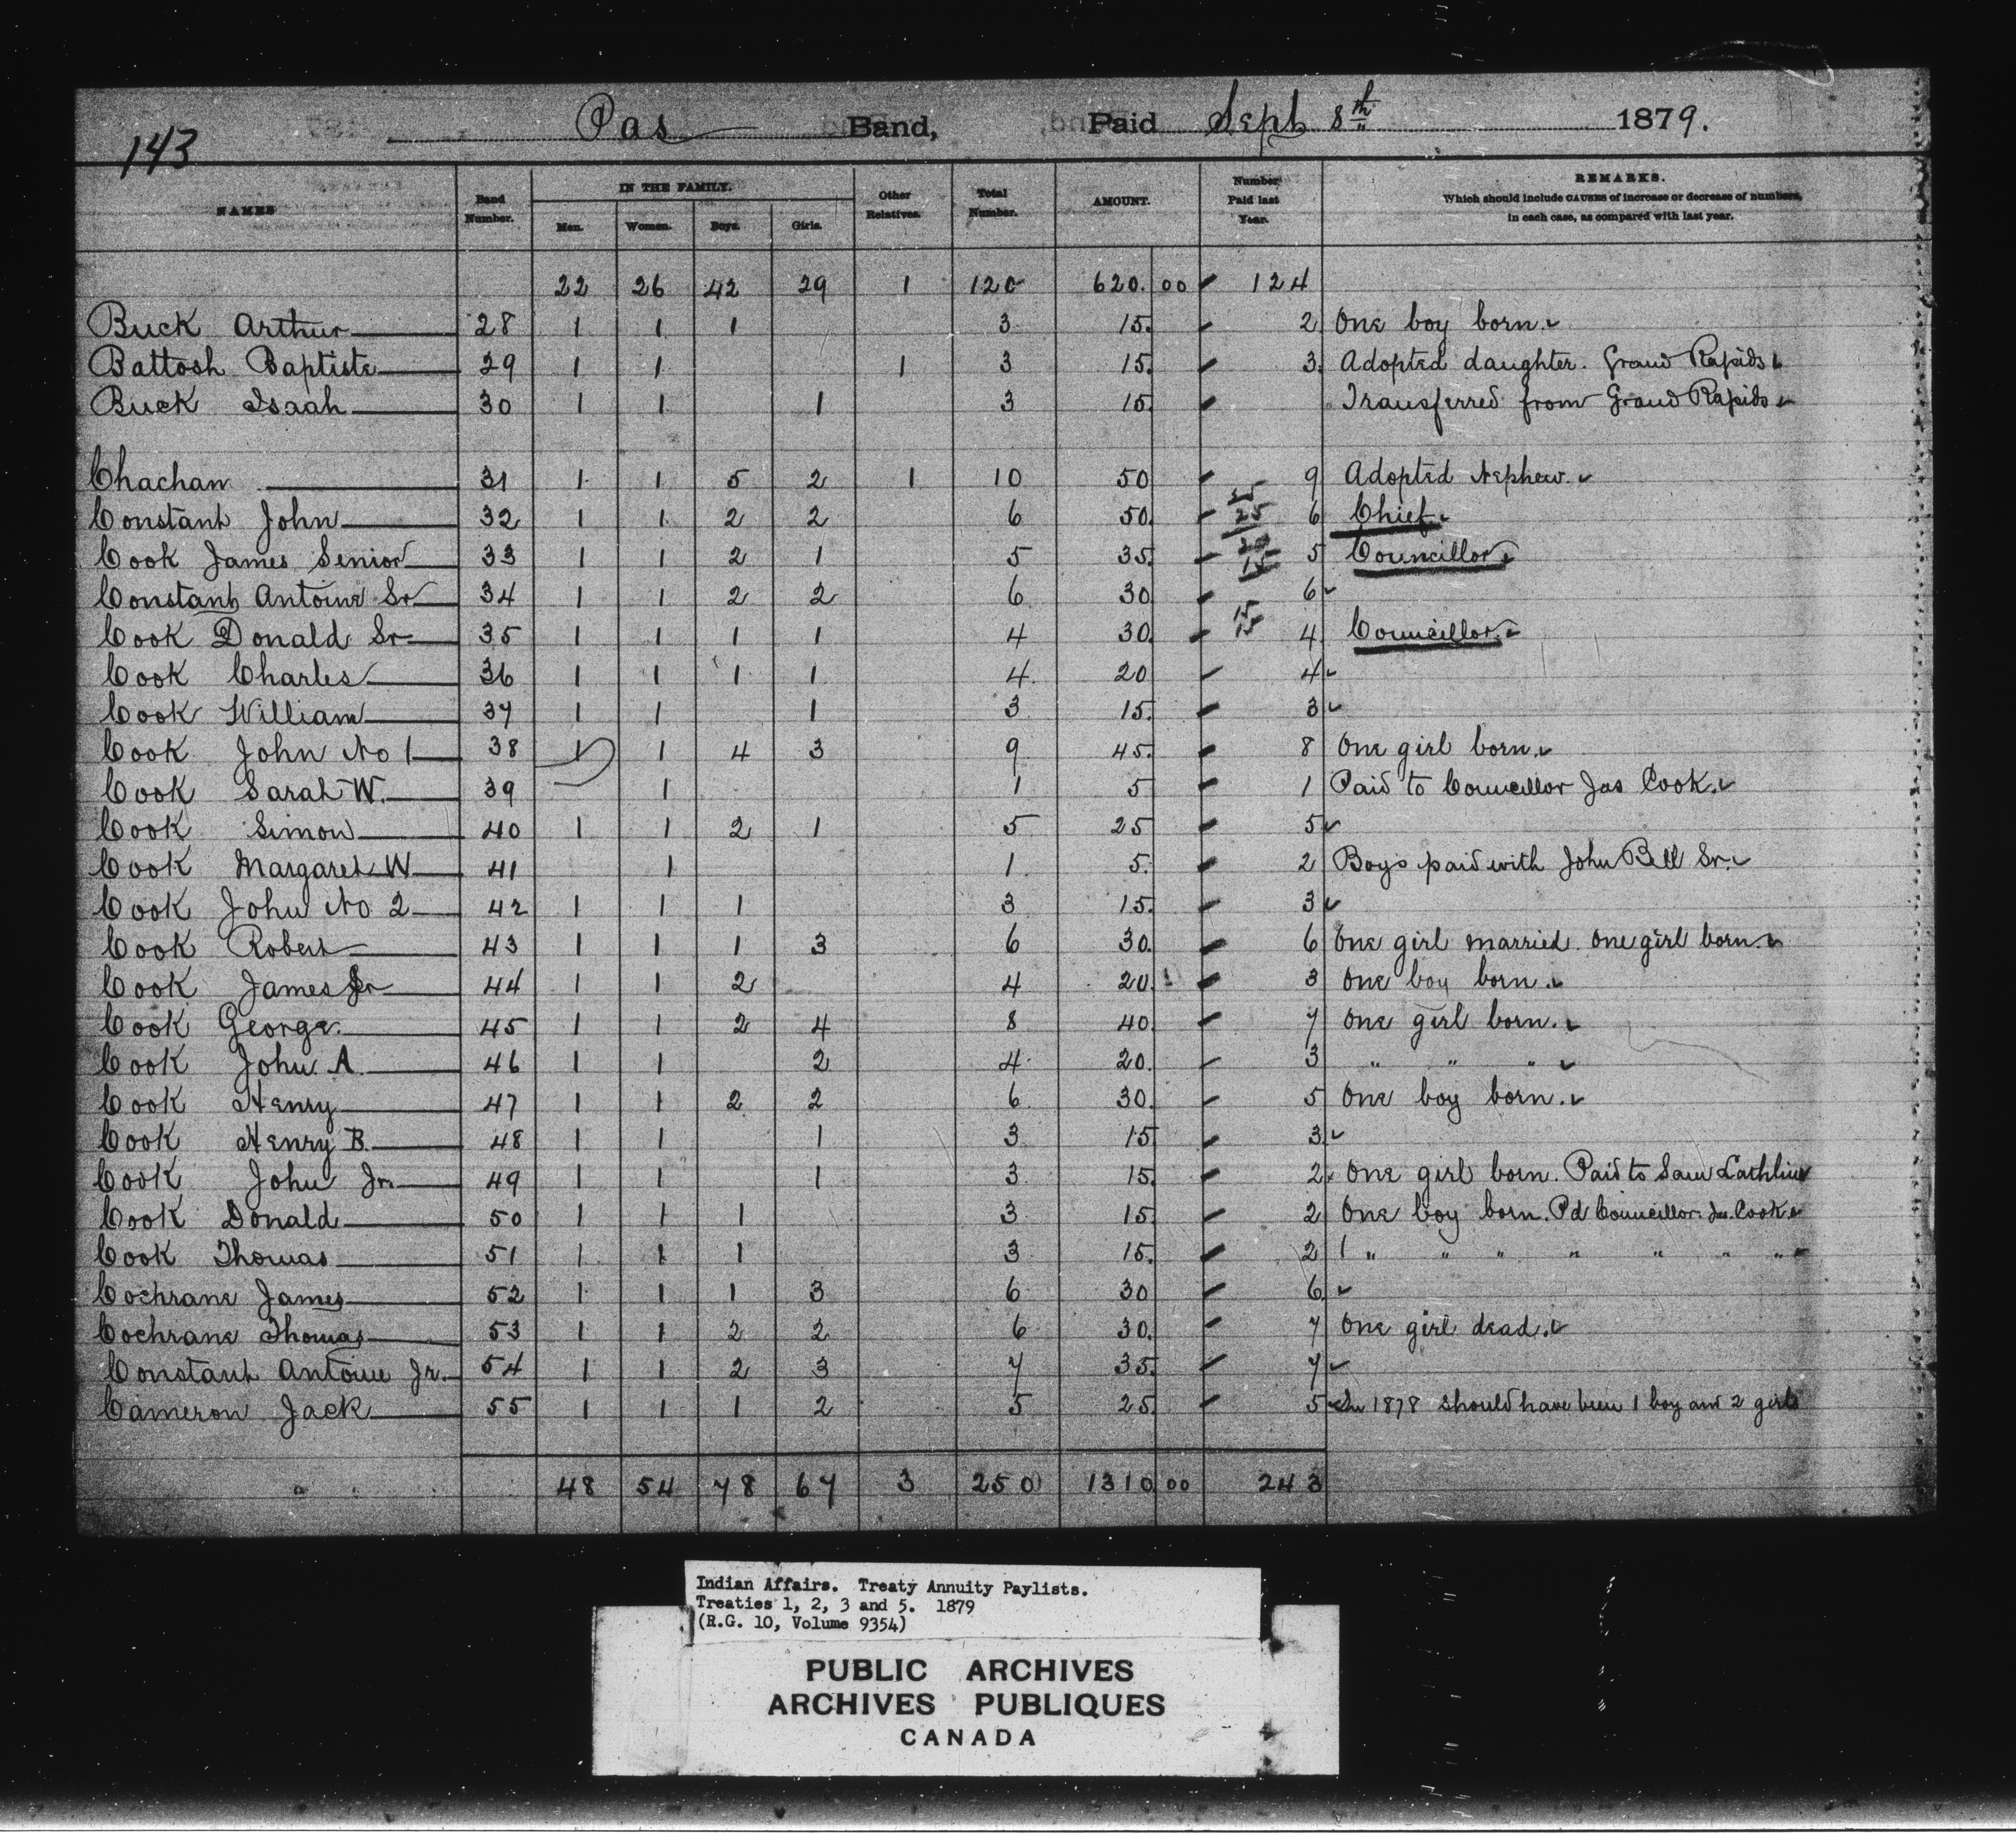 143
Pas Band, Paid Sept 8th 1879.
NAMES Band Number. IN THE FAMILY. Men. Women. Boys. Girls. Other Relatives. Total Number. AMOUNT. Number Paid last Year. REMARKS. Which should include CAUSES of increase or decrease of numbers, in each case, as compared with last year.
22 26 42 29 1 120 620.00 124
Buck Arthur 28 1 1 1 3 15. 2 One boy born.
Battosh Baptiste 29 1 1 1 3 15. 3. Adopted daughter. Grand Rapids
Buck Isaah 30 1 1 1 3 15. Transferred from Grand Rapids
Chachan 31 1 1 5 2 1 10 50 9 Adopted Nephew.
Constant John 32 1 1 2 2 6 50. 25 25 6 Chief.
Cook James Senior 33 1 1 2 1 5 35. 20 15 5 Councillor
Constant Antoine Sr 34 1 1 2 2 6 30 6
Cook Donald Sr 35 1 1 1 1 4 30. 15 15 4 Councillor
Cook Charles 36 1 1 1 1 4 20 4
Cook William 37 1 1 1 3 15. 3
Cook John No 1 38 1 1 4 3 9 45. 8 One girl born.
Cook Sarah W. 39 1 1 5 1 Paid to Councillor Jas Cook.
Cook Simon 40 1 1 2 1 5 25 5
Cook Margaret W 41 1 1 5. 2 Boys paid with John Bell Sr.
Cook John No 2 42 1 1 1 3 15. 3
Cook Robert 43 1 1 1 3 6 30. 6 One girl married. One girl born.
Cook James Jr 44 1 1 2 4 20. 3 One boy born.
Cook George. 45 1 1 2 4 8 40. 7 One girl born.
Cook John A. 46 1 1 2 4 20. 3 " " "
Cook Henry 47 1 1 2 2 6 30. 5 One boy born.
Cook Henry B. 48 1 1 1 3 15 3
Cook John Jr. 49 1 1 1 3 15. 2 One girl born. Paid to Sam Lathlin
Cook Donald 50 1 1 1 3 15 2 One boy born. Pd Councillor Jas. Cook
Cook Thomas 51 1 1 1 3 15. 2 1 " " " " " " "
Cochrane James 52 1 1 1 3 6 30 6
Cochrane Thomas 53 1 1 2 2 6 30. 7 One girl dead.
Constant Antoine Jr. 54 1 1 2 3 7 35. 7
Cameron Jack 55 1 1 1 2 5 25. 5 In 1878 should have been 1 boy and 2 girls
48 54 78 67 3 250 1310 00 243
Indian Affairs. Treaty Annuity Paylists.
Treaties 1, 2, 3 and 5. 1879
(R.G. 10, Volume 9354)
PUBLIC ARCHIVES
ARCHIVES PUBLIQUES
CANADA